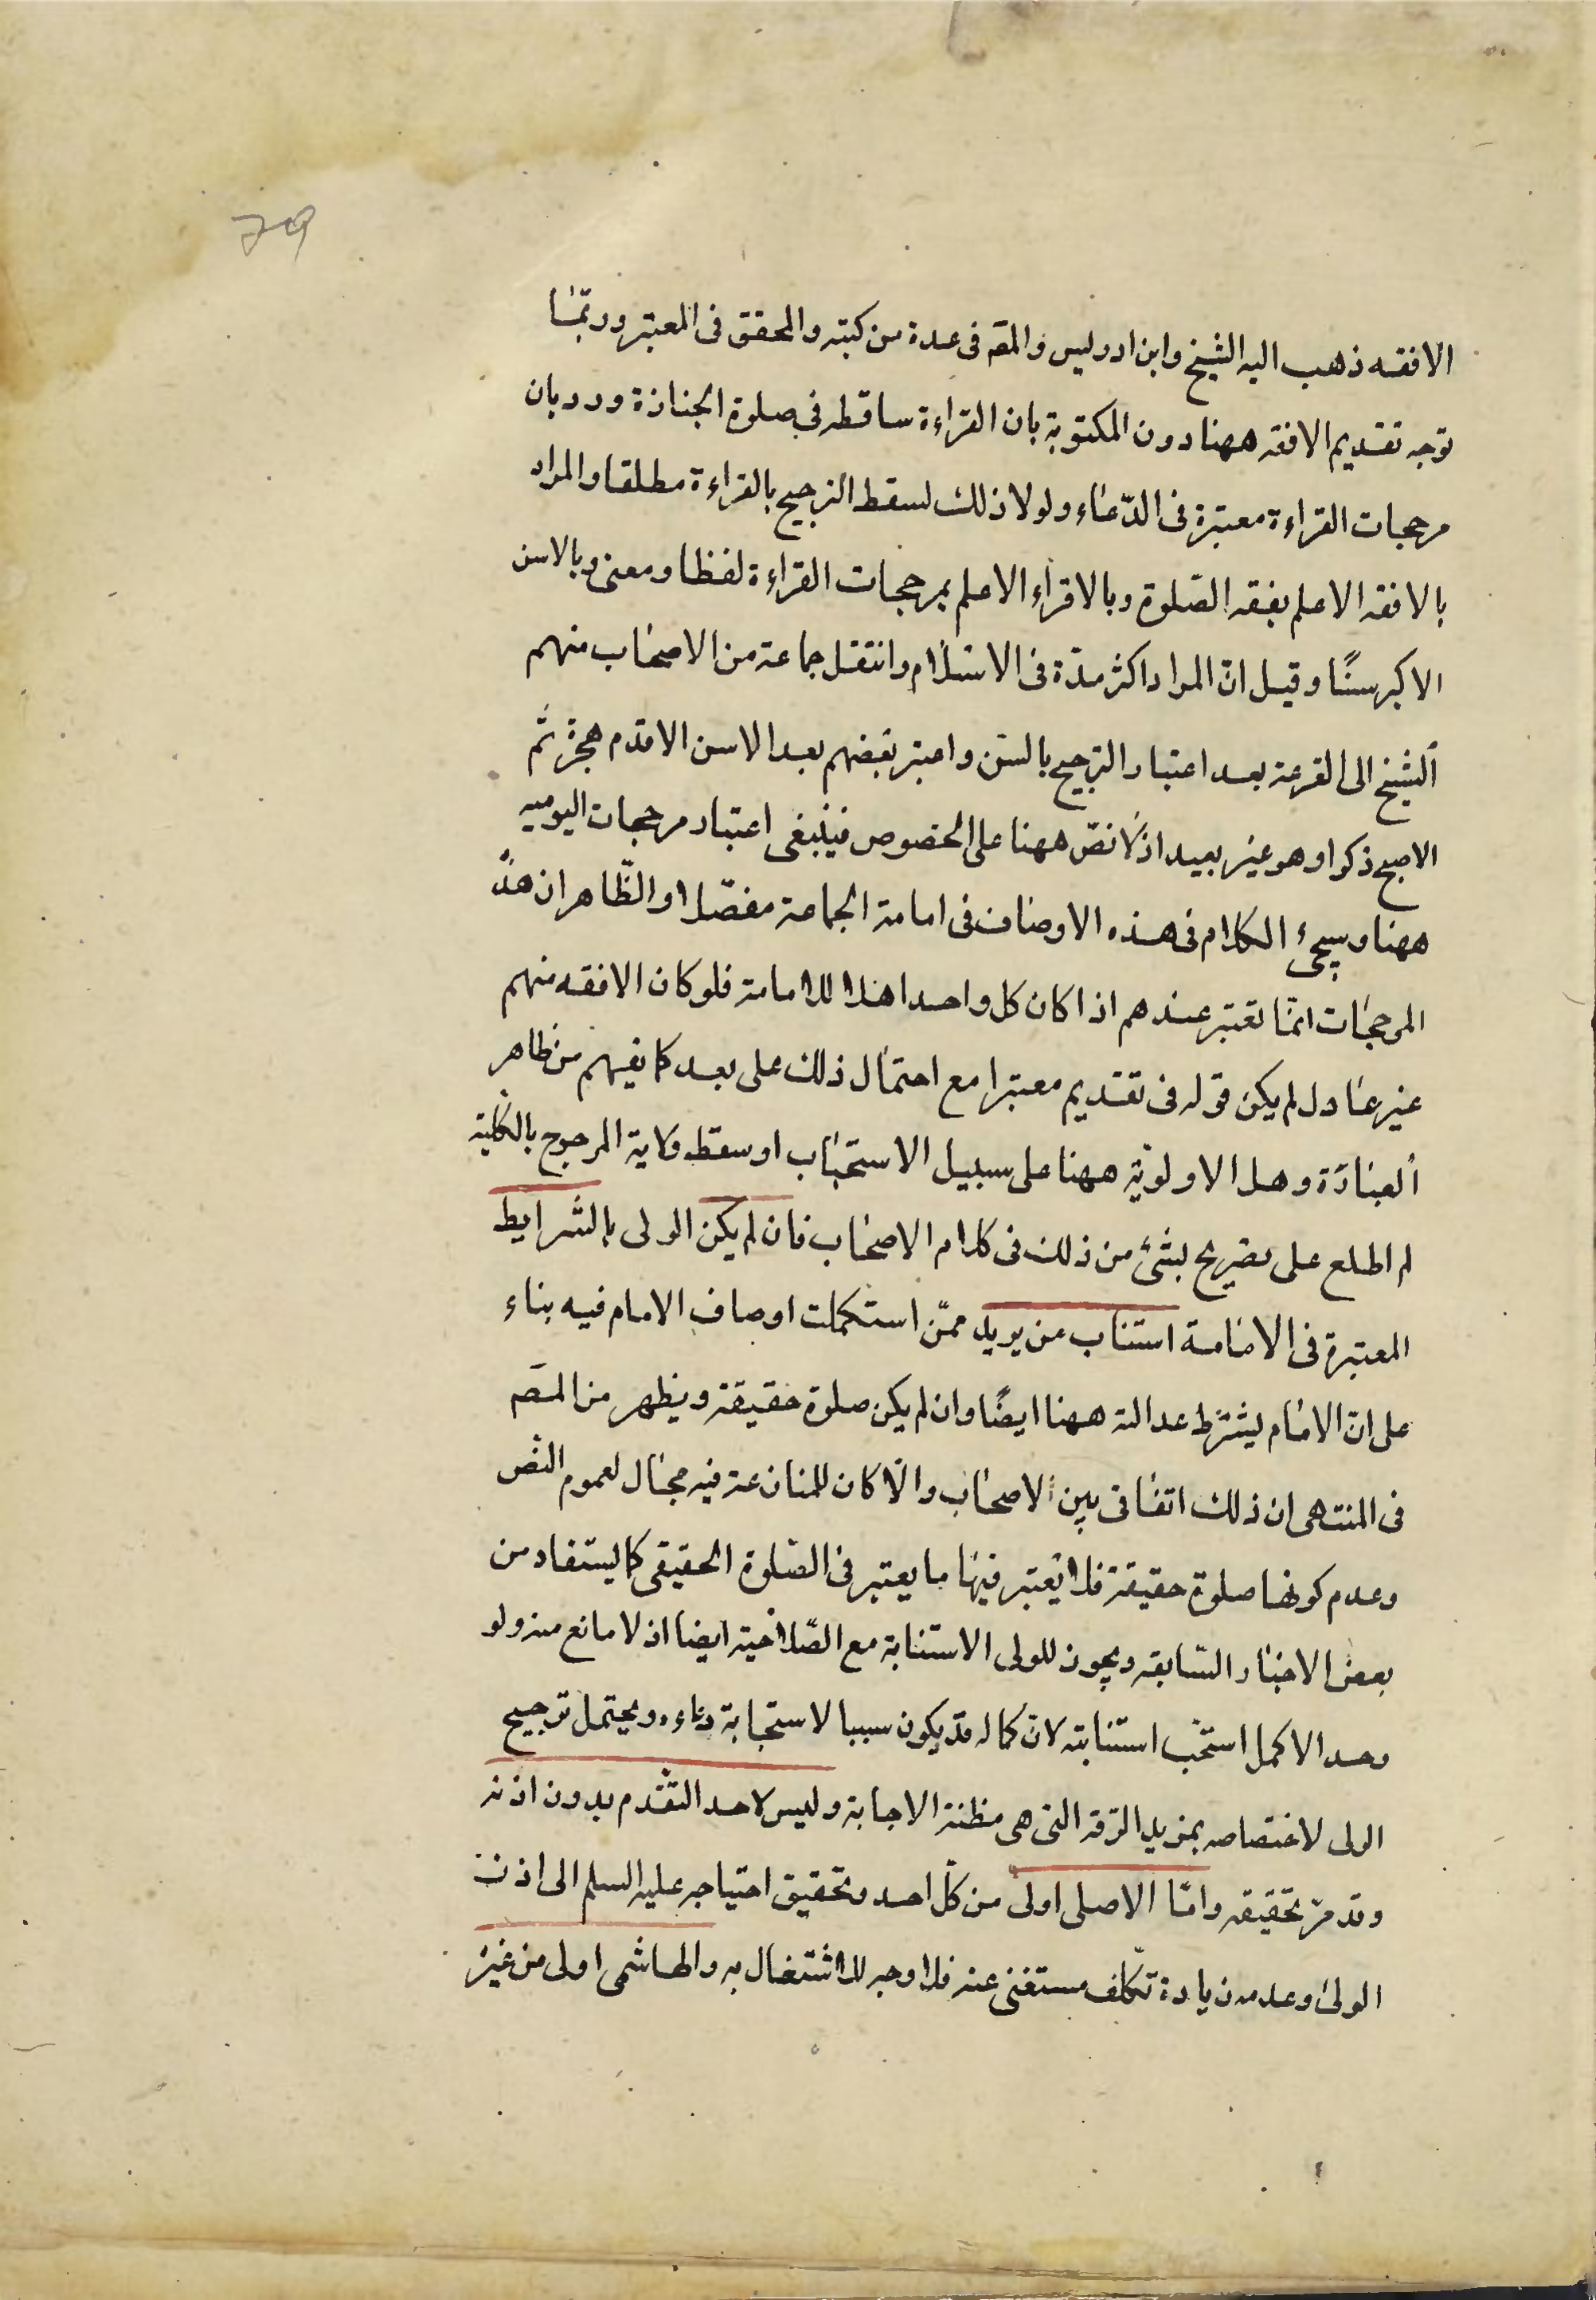 ٧٩
الافقه ذهب اليه الشيخ وابن ادريس والمصه فى عدة من كتبه والمحقق فى المعتبر وربّما
توجه تقديم الافقه ههنا دون المكتوبة بان القراءة ساقطه فى صلوة الجنازة ورد بان
مرجحات القراءة معتبرة فى الدّعاء ولولا ذلك لسقط الترجيح بالقراءة مطلقا والمراد
بالافقه الاعلم بفقه الصّلوة وبالاقراء الاعلم بمرجحات القراءة لفظا ومعنى وبالاسن
الاكبر سنًا وقيل انّ المراد اكثر مدّة فى الاسلام وانتقل جماعة من الاصحاب منهم
الشيخ الى القرعة بعد اعتبار الترجيح بالسّن واعتبر بعضهم بعد الاسن الاقدم هجرة ثم
الاصبح ذكرا وهو غير بعيد اذ لا نصّ ههنا على الخصوص فينبغى اعتبار مرجحات اليوميه
ههنا وسيجئ الكلام فى هذه الاوصاف فى امامة الجماعة مفصّلا والظّاهر ان هذه
المرجحات انمّا تعتبر عندهم اذا كان كل واحد اهلا للامامة فلو كان الافقه منهم
غير عادل لم يكن قوله فى تقديم معتبرا مع احتمال ذلك على بعد كما يفهم من ظاهر
العبارة وهل الاولويّة ههنا على سبيل الاستحباب او سقط ولاية المرجوح بالكليّة
لم اطلع على تصريح بشئ من ذلك فى كلام الاصحاب فان لم يكن الولى بالشرايط
المعتبرة فى الامامة استناب من يريد ممّن استكملت اوصاف الامام فيه بناء
على انّ الامام يشترط عدالته ههنا ايضًا وان لم يكن صلوة حقيقة ويظهر من المصه
فى المنتهى ان ذلك اتفاقى بين الاصحاب والّا كان للمنازعة فيه مجال لعموم النصّ
وعدم كونها صلوة حقيقة فلا يعتبر فيها ما يعتبر فى الصّلوة الحقيقى كما يستفاد من
بعض الاخبار السّابقه ويجوز للولى الاستنابة مع الصّلاحية ايضا اذ لا مانع منه ولو
وجد الاكمل استحبّ استنابته لانّ كماله قد يكون سببا لاستجابة دعاءه ويحتمل ترجيح
الولى لاختصاصه بمزيد الرّقة التى هى مظنة الاجابة وليس لاحد التقدم بدون اذنه
وقد مرّ تحقيقه وامّا الاصلى اولى من كلّ احد وتحقيق احتياجه عليه السلم الى اذن
الولى وعدمه زيادة تكلّف مستغنى عنه فلا وجه للاشتغال به والهاشمى اولى من غيره